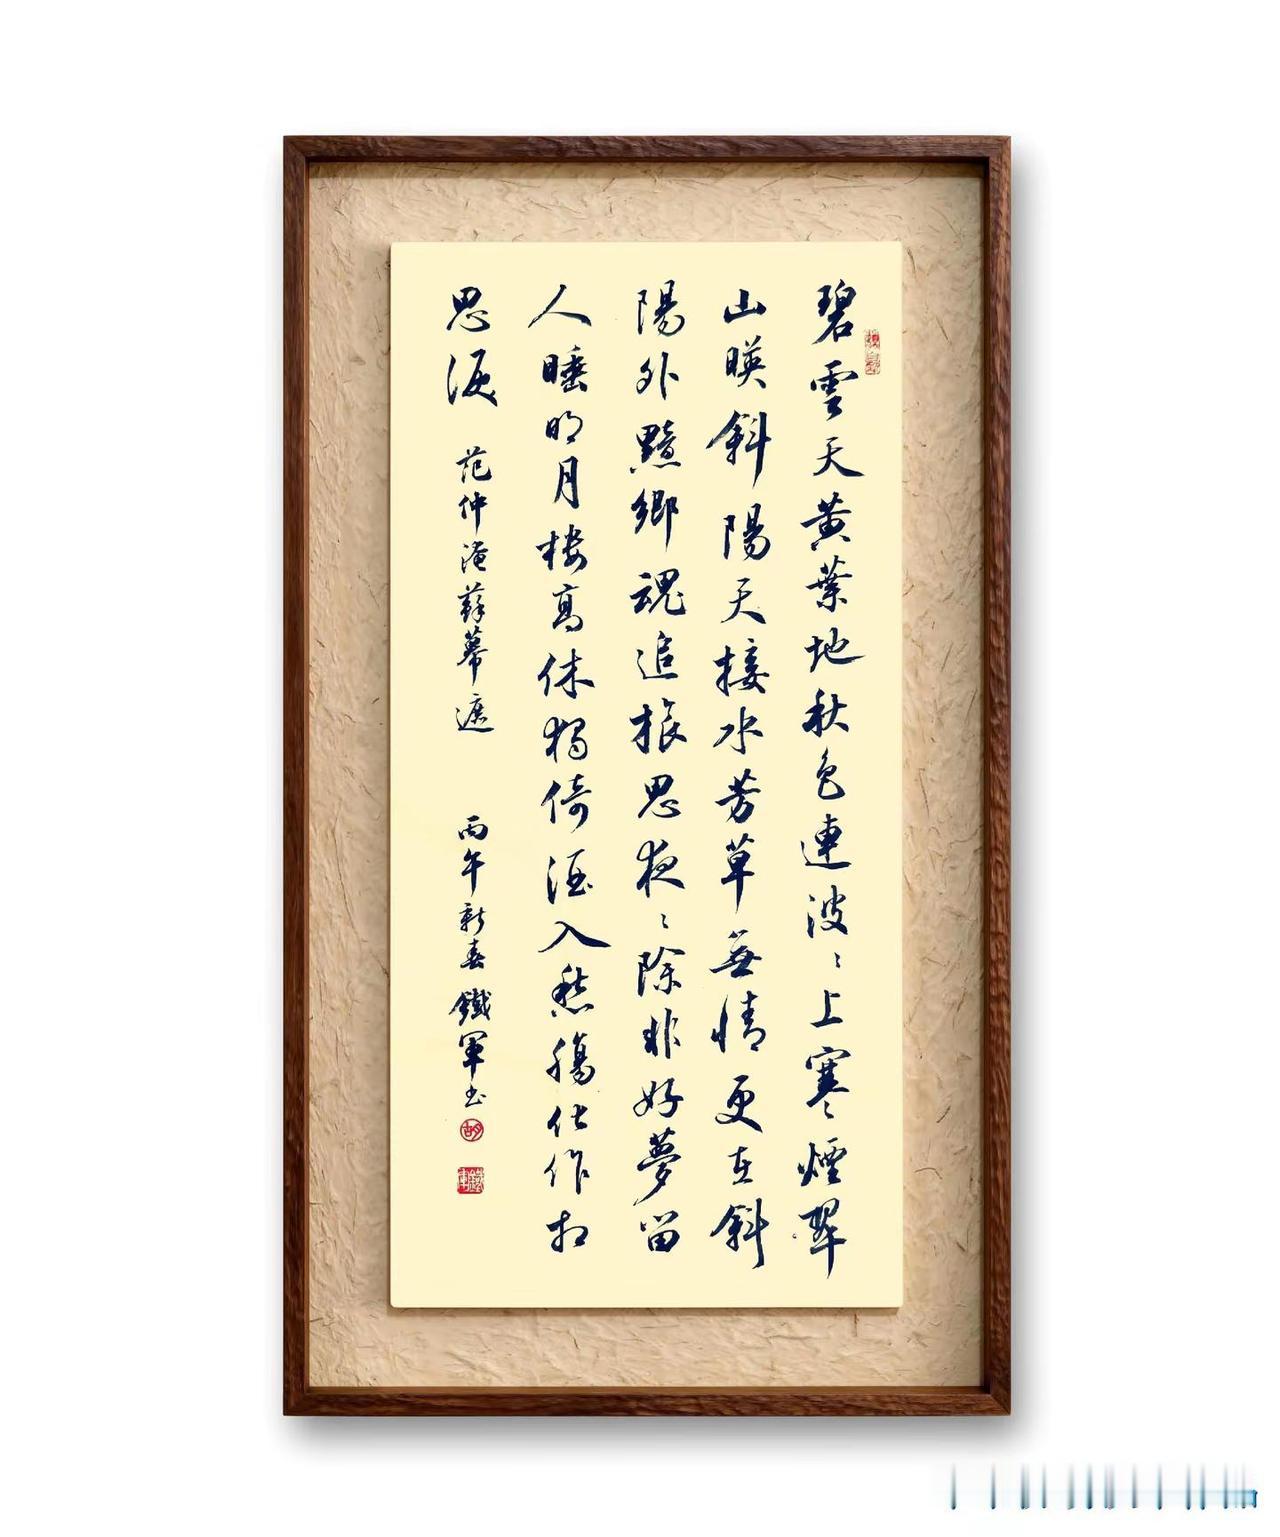 碧雲天黄葉地秋色連波〻上寒〻煙翠
山暎斜陽天接水芳草無情更在斜
陽外黯鄉魂追旅思夜〻除非好夢留
人睡明月樓高休獨倚酒入愁腸化作相
思淚 范仲淹蘇幕遮 丙午新春鐵軍書
胡
鐵軍